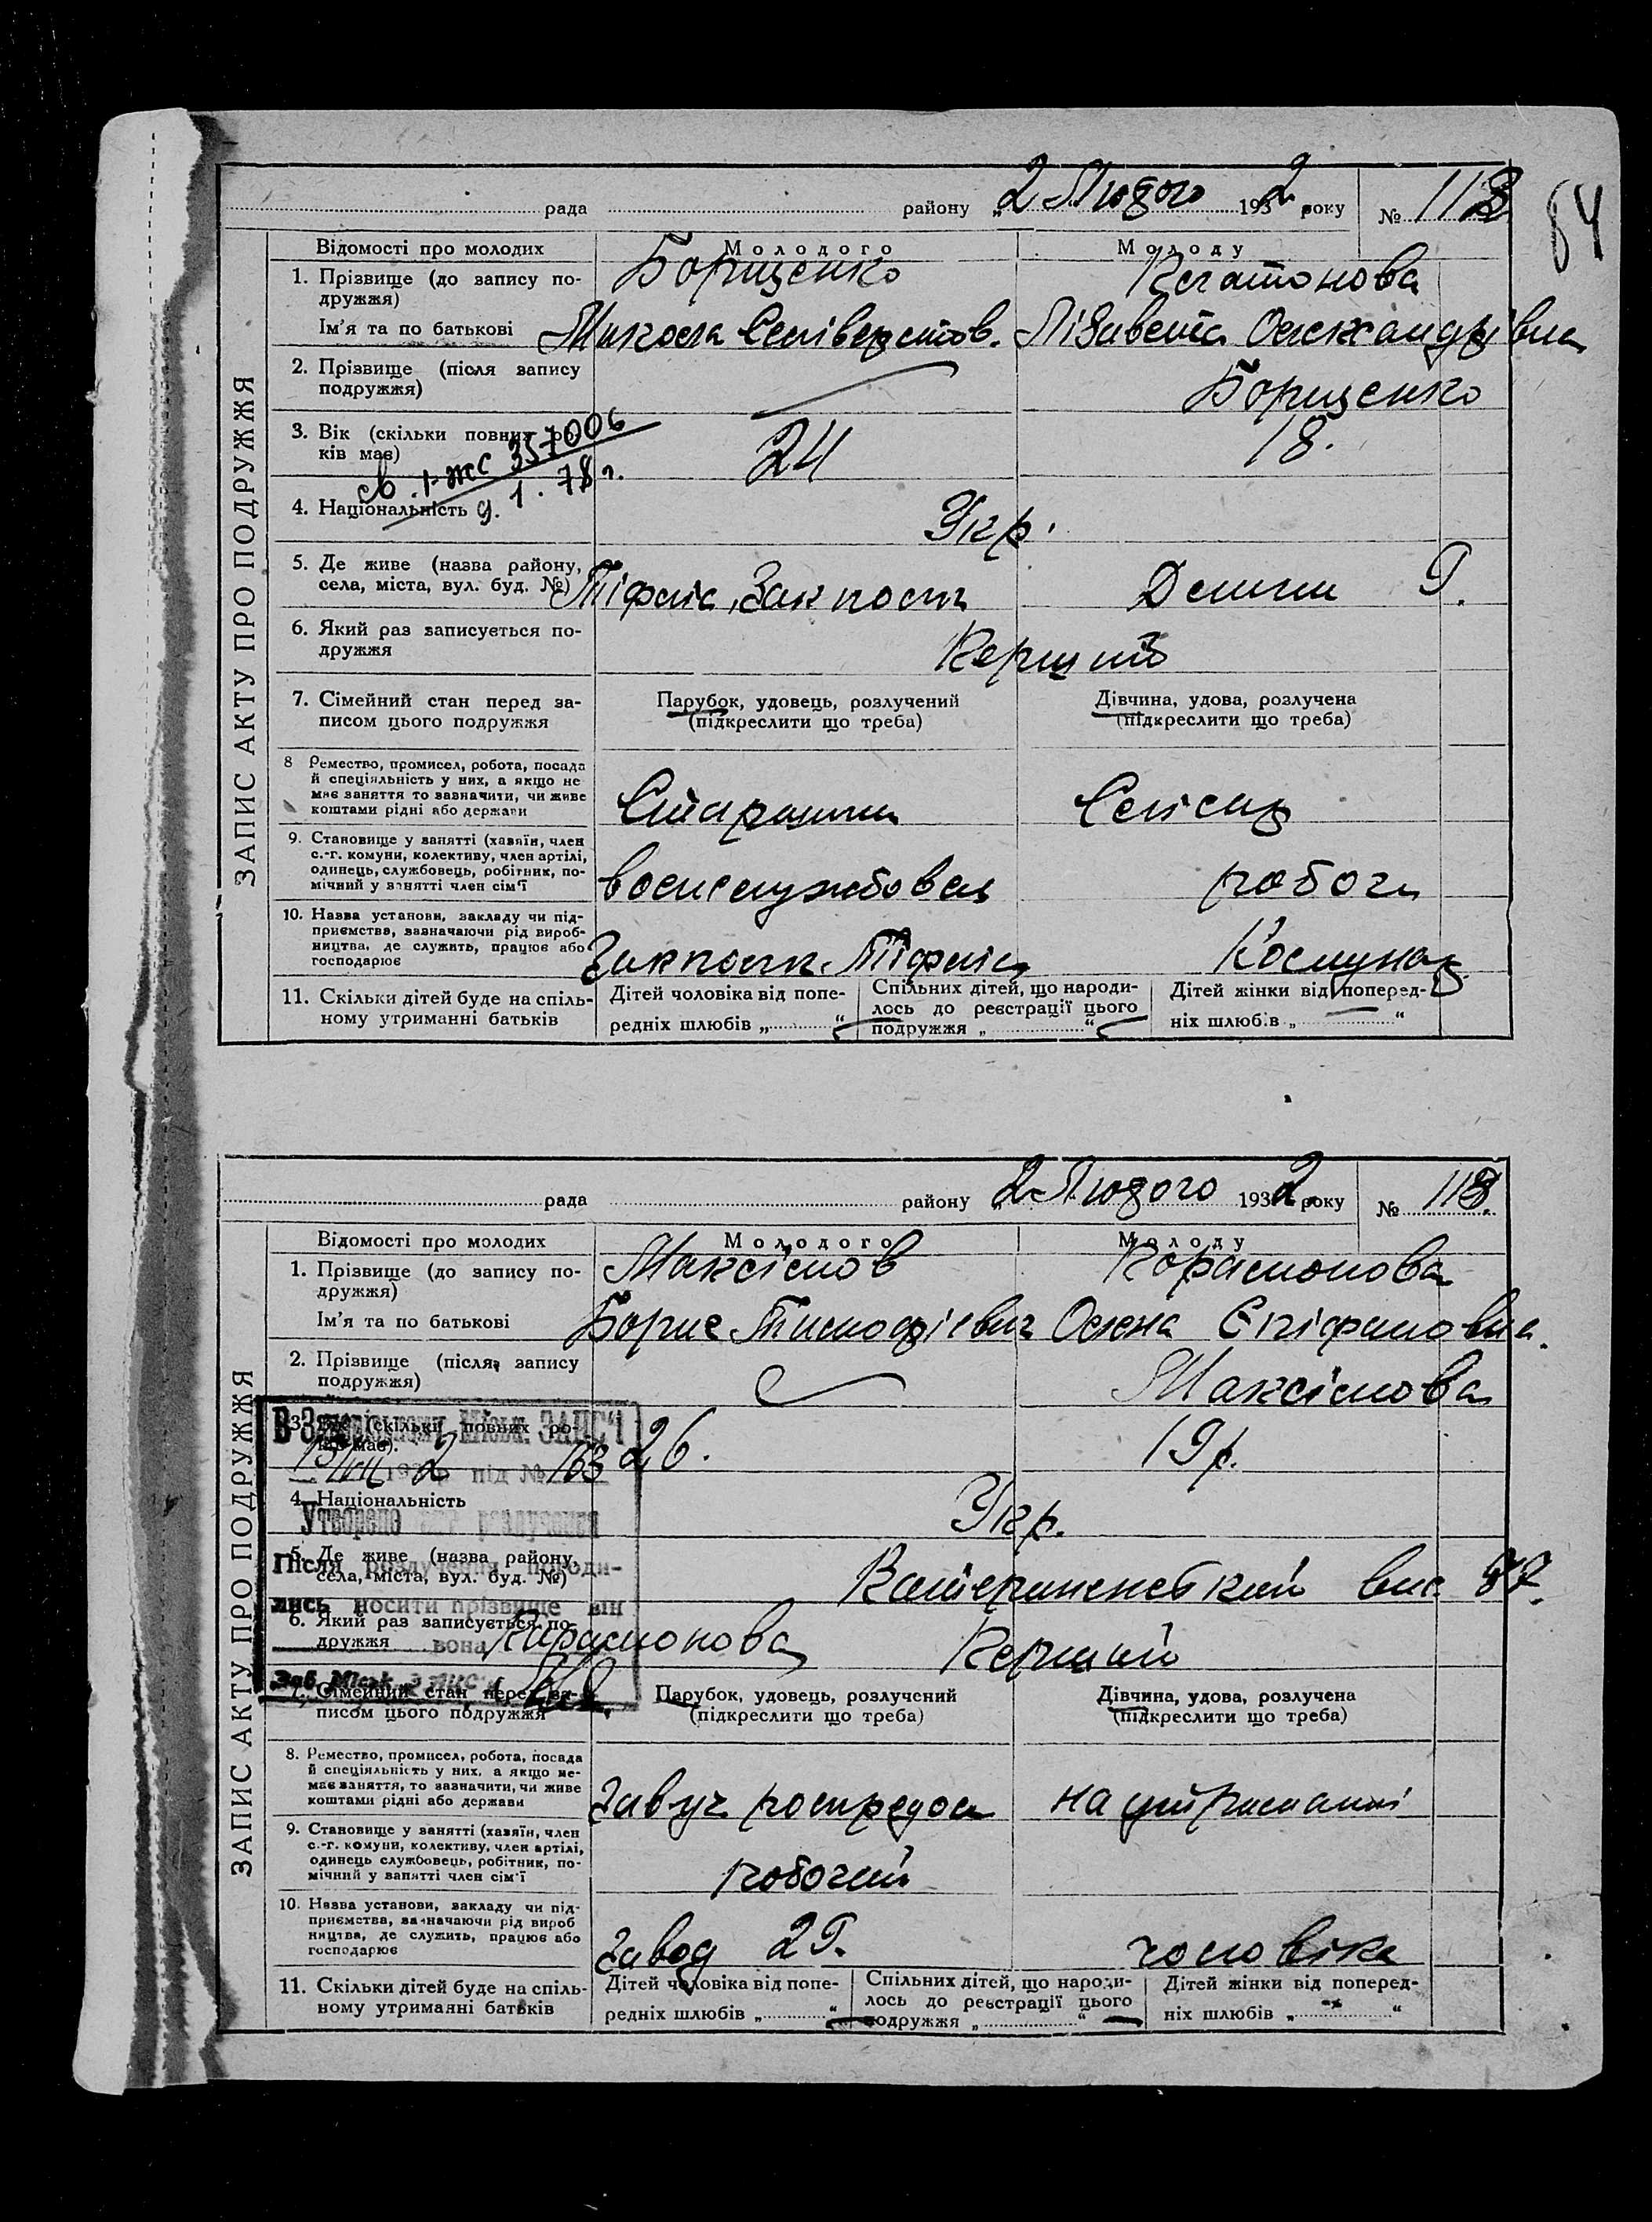 84
рада района „2 Лютого 1932 року № 112
ЗАПИС АКТУ ПРО ПОДРУЖЖЯ
Відомості про молодих Молодого Молоду
1. Прізвище (до запису по-
дружжя)
Борщенко Платонова
Ім'я та по батькові Микола Селіверстов. Лізавета Олександрівна
2. Прізвище (після запису
подружжя)
Борщенко
3. Вік (скільки повних ро-
ків має)
24 18.
св. 1-жс 357006
9. 1. 78 г.
4. Національність Укр.
5. Де живе (назва району,
села, міста, вул. буд. №)
Тіфліс, Закполк
6. Який раз записується по-
дружжя
Перший
7. Сімейний стан перед за-
писом цього подружжя
Парубок, удовець, розлучений
(підкреслити що треба)
Дівчина, удова, розлучена
(підкреслити що треба)
8 Ремество, промисел, робота, посада
й спеціяльність у них, а якщо не
має заняття то зазначити, чи живе
коштами рідні або держави
Старшина
9. Становище у занятті (хазяїн, член
с.-г. комуни, колективу, член артілі,
одинець, службовець, робітник, по-
мічний у занятті член сім'ї
воєнслужбовец робоч
10. Назва установи, закладу чи під-
приємства, зазначаючи рід вироб-
ництва, де служить, працює або
господарює
Закполк. Тіфліс Комунар
11. Скільки дітей буде на спіль-
ному утриманні батьків
Дітей чоловіка від попе-
редніх шлюбів „ “
Спільних дітей, що народи-
лось до реєстрації цього
подружжя „ “
Дітей жінки від поперед-
ніх шлюбів „ “
рада району „2 Лютого 1932 року № 113
ЗАПИС АКТУ ПРО ПОДРУЖЖЯ
Відомості про молодих Молодого Молоду
1. Прізвище (до запису по-
дружжя)
Максімов Парамонова
Ім'я та по батькові Борис Тимофієвич Олена Єпіфановна.
2. Прізвище (після запису
подружжя)
Максімова
3. Вік (скільки повних ро-
ків має).
26. 19р.
під № 163
4. Національність Укр.
Утворено акт розлучення
5. Де живе (назва району,
села, міста, вул. буд. №)
Катериненський вис. 87.
Після розлучення погоди-
лись носити прізвище він
вона Парамонова
6. Який раз записується по-
дружжя
Перший
7. Сімейний стан перед за-
писом цього подружжя
Парубок, удовець, розлучений
(підкреслити що треба)
Дівчина, удова, розлучена
(підкреслити що треба)
8. Ремество, промисел, робота, посада
й спеціяльність у них, а якщо не-
має заняття, то зазначити, чи живе
коштами рідні або держави
Завуч розпредол на утриманні
9. Становище у занятті (хазяїн, член
с.-г. комуни, колективу, член артілі,
одинець службовець, робітник, по-
мічний у занятті член сім'ї
робочий
10. Назва установи, закладу чи під-
приємства, зазначаючи рід вироб
ництва, де служить, працює або
господарює
Завод 29. чоловіка
11. Скільки дітей буде на спіль-
ному утриманні батьків
Дітей чоловіка від попе-
редніх шлюбів „ “
Спільних дітей, що народи-
лось до реєстрації цього
подружжя „ “
Дітей жінки від поперед-
ніх шлюбів „ “